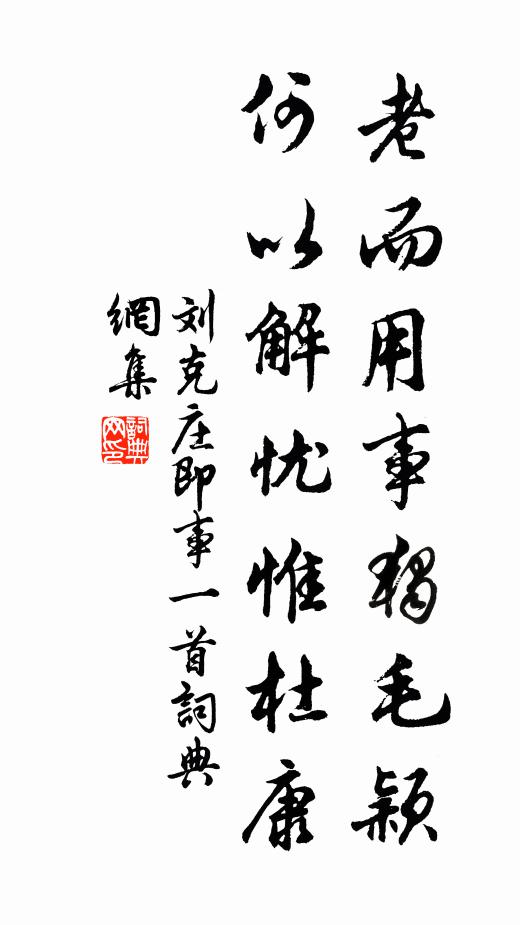 老而用事独毛颖
何以解忧惟杜康
刘克庄即事一首詞典
網集
詞典
网印